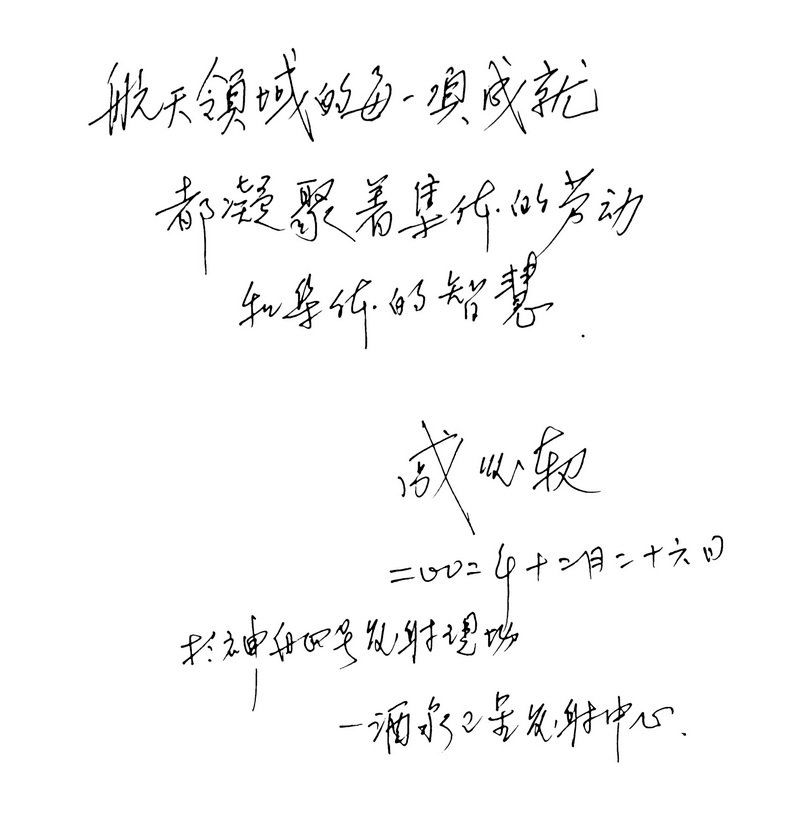 航天领域的每一项成就
都凝聚着集体的劳动
和集体的智慧.
戚发轫
二〇〇二年十二月二十六日
于神舟四号发射现场
—酒泉卫星发射中心.